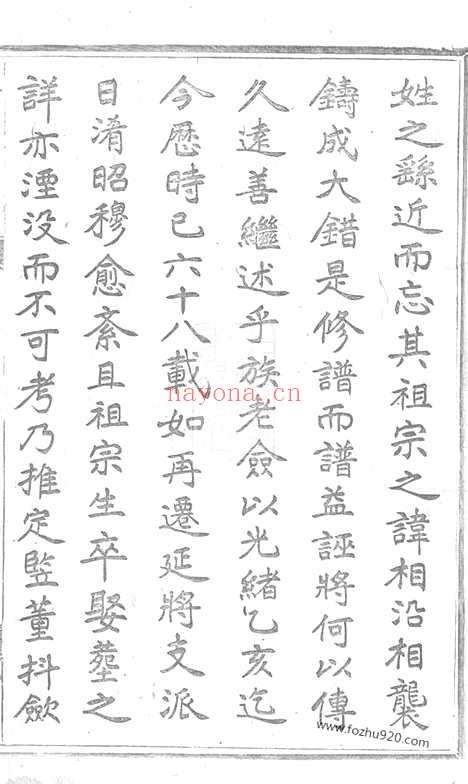 姓之繇近而忘其祖宗之諱相沿相襲
鑄成大錯是修譜而譜益誣將何以傳
久遠善繼述乎族老僉以光緒乙亥迄
今歷時已六十八載如再遷延將支派
日淆昭穆愈紊且祖宗生卒娶墓之
詳亦湮没而不可考乃推定監董抖歛
nayona.cn
www.fozhu920.com